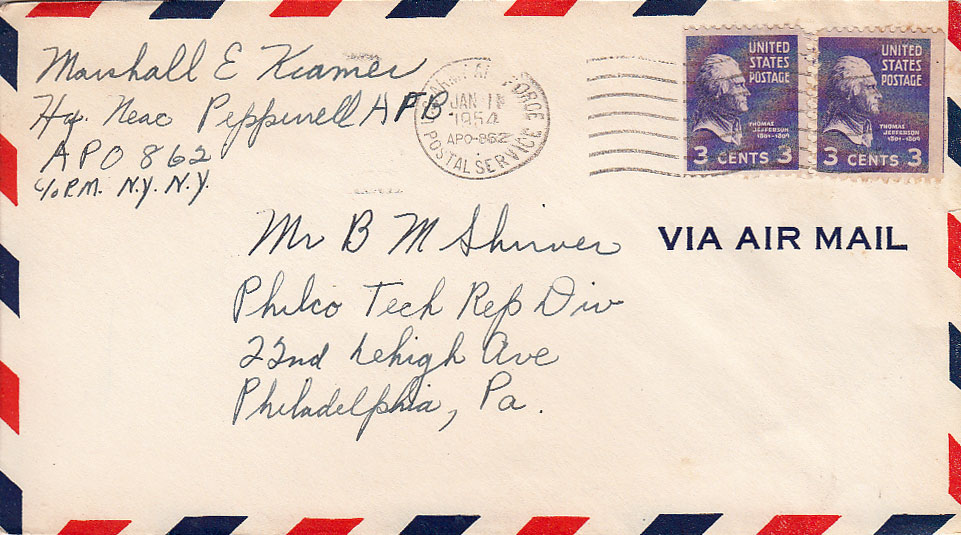 Marshall E Kramer
Hq. Neac Pepperrell AFB.
APO 862
c/o P.M. N.Y. N.Y.
ARMY AIR FORCE
JAN 11
1954
APO-862
POSTAL SERVICE
UNITED
STATES
POSTAGE
THOMAS
JEFFERSON
1801-1809
3 CENTS 3
UNITED
STATES
POSTAGE
THOMAS
JEFFERSON
1801-1809
3 CENTS 3
VIA AIR MAIL
Mr B M Shriver
Philco Tech Rep Div
22nd Lehigh Ave
Philadelphia, Pa.